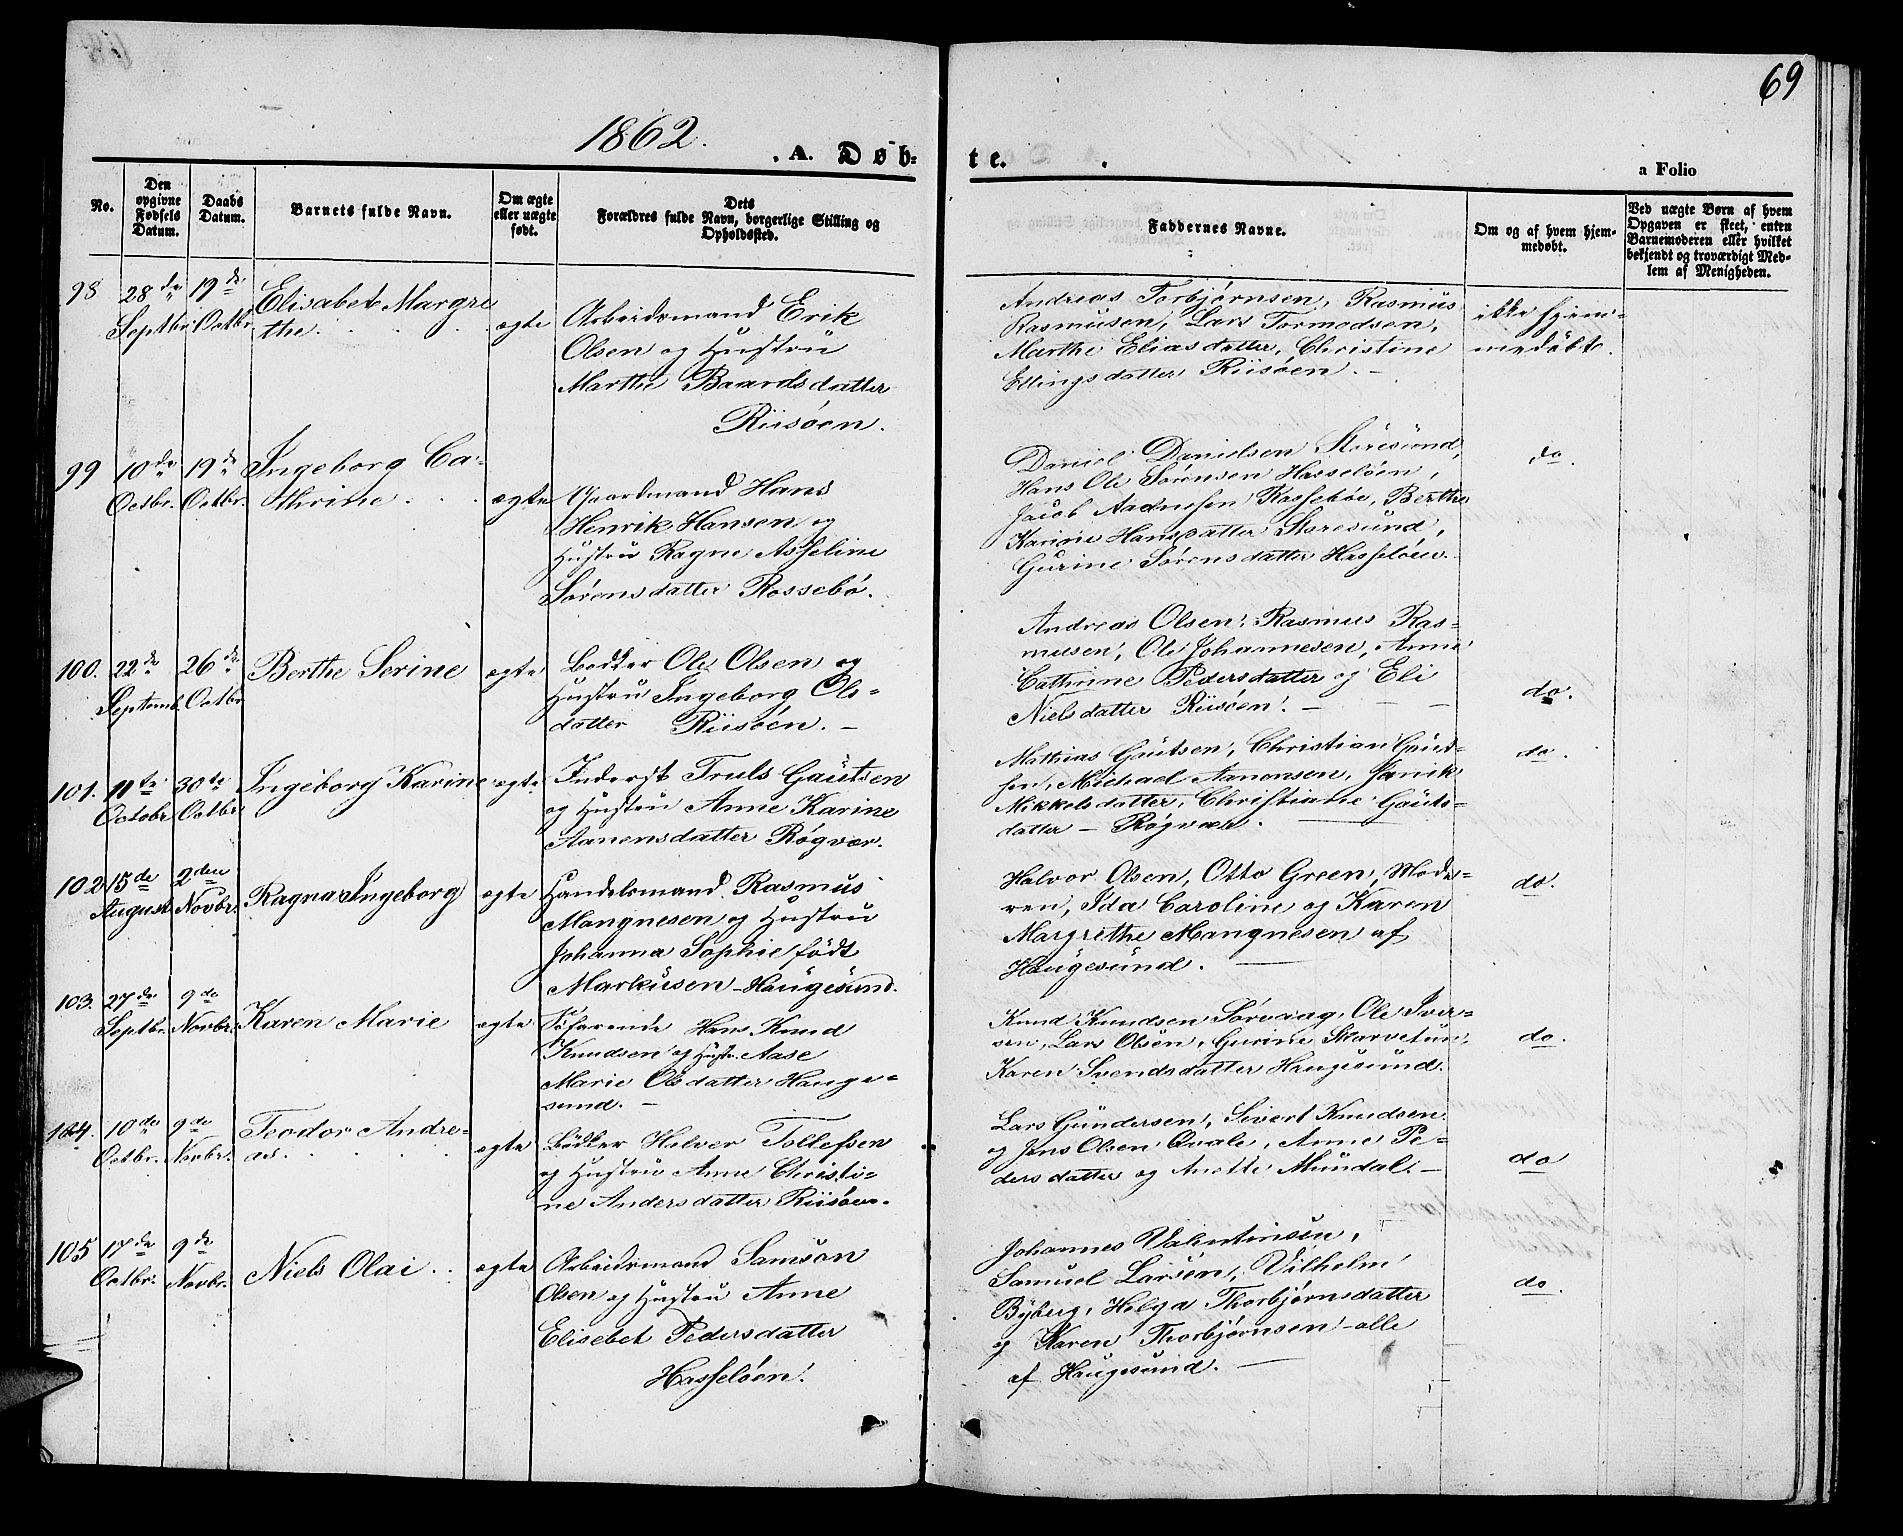 69
1862.
. A. Døb=
te.
a Folio
No.
Den opgivne Fødsels Datum.
Daabs Datum.
Barnets fulde Navn.
Om ægte eller uægte født.
Dets Forældres fulde Navn, borgerlige Stilling og Opholdssted.
Faddernes Navne.
Om og af hvem hjemmedøbt.
Ved uægte Børn af hvem Opgaven er skeet, enten Barnemoderen eller hvilket bekjendt og troværdigt Medlem af Menigheden.
98
28de Septbr.
19de Octbr.
Elisabet Margre
the.
ægte
Arbeidsmand Erik
Olsen og Hustru
Marthe Baardsdatter
Riisöen.
Andreas Torbjørnsen, Rasmus
Rasmusen, Lars Tormodsen,
Marthe Eliasdatter, Christine
Ellingsdatter Riisöen. –
ikke hjem=
medöbt.
99
10de Octbr.
19de Octbr.
Ingeborg Ca=
thrine.
ægte
Gaardmand Hans
Henrik Hansen og
Hustru Ragne Asseline
Sörensdatter Rossebö.
Daniel Danielsen Storesund,
Hans Ole Sörensen Hasselöen,
Jacob Aadnesen Rosseböe, Berthe
Karine Hansdatter Storesund,
Gurine Sörensdatter Hasselöen.
do.
100.
22de Septemb.
26de Octbr
Berthe Serine
ægte
Bödker Ole Olsen og
Hustru Ingeborg Ols=
datter Riisöen. –
Andreas Olsen, Rasmus Ras=
musen, Ole Johannesen, Anne
Cathrine Pedersdatter og Eli
Nielsdatter Riisöen. –
do.
101.
11te Octobr.
30te Octbr.
Ingeborg Karine
ægte
Inderst Truls Gautsen
og Hustru Anne Karine
Aanensdatter Rögvær.
Mathias Gautsen, Christian Gaut=
sen, Michael Aanensen, Janik
Mikkelsdatter, Christiane Gauts=
datter – Rögvær.
do.
102
15de August
2den Novbr.
Ragna Ingeborg
ægte
Handelsmand Rasmus
Mangnesen og Hustru
Johanna Sophie född
Markusen – Haugesund.
Halvor Olsen, Otto Green, Mode=
ren, Ida Caroline og Karen
Margrethe Mangnesen af
Haugesund.
do.
103.
27de Septbr.
9de Novbr.
Karen Marie
ægte
Söfarende Hans Knud
Knudsen og Hustr. Aase
Marie Olsdatter Hauge=
sund. –
Knud Knudsen Sörvaag, Ole Iver=
sen, Lars Olsen, Gurine Skarvetun,
Karen Svendsdatter Haugesund.
do.
104.
10de Octbr.
9de Novbr.
Teodor Andre=
as.
ægte
Bödker Halver Tollefsen
og Hustru Anne Christi=
ne Andersdatter Riisöen.
Lars Gundersen, Sivert Knudsen
og Jens Olsen Qvale, Anne Pe=
dersdatter og Anette Mundal. –
do
105
17de Octbr.
9de Novbr.
Niels Olai.
ægte
Arbeidsmand Samson
Olsen og Hustru Anne
Elisebet Pedersdatter
Hasselöen.
Johannes Valentinsen,
Samuel Larsen, Vilhelm
Byberg, Helga Thorbjørnsdatter
og Karen Thorbjørnsen – alle
af Haugesund.
do.